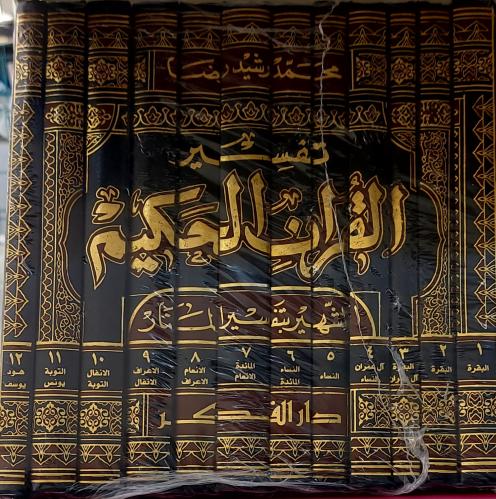 محمد رشيد رضا
تفسير
القرآن الحكيم
الشهير بتفسير المنار
١ ٢ ٣ ٤ ٥ ٦ ٧ ٨ ٩ ١٠ ١١ ١٢
البقرة
البقرة
البقرة
آل عمران
آل عمران
النساء
النساء
النساء
المائدة
المائدة
الأنعام
الأنعام
الأعراف
الأعراف
الأنفال
الأنفال
التوبة
التوبة
يونس
هود
يوسف
دار الفكر